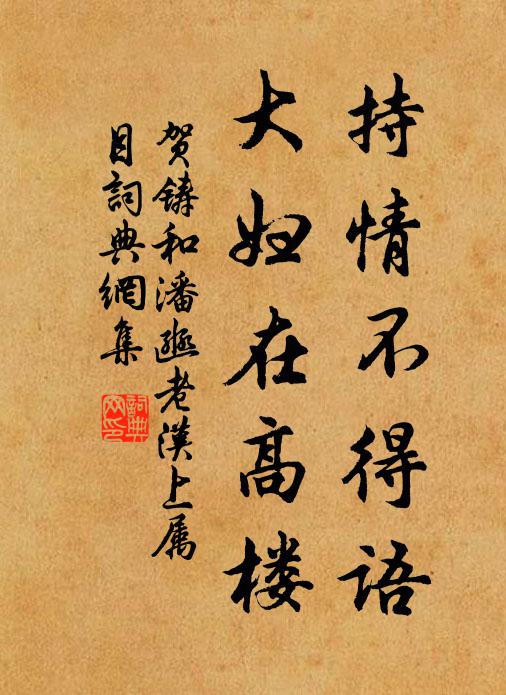 持情不得语
大妇在高楼
贺铸和潘邠老汉上属
目词典網集
詞典网印